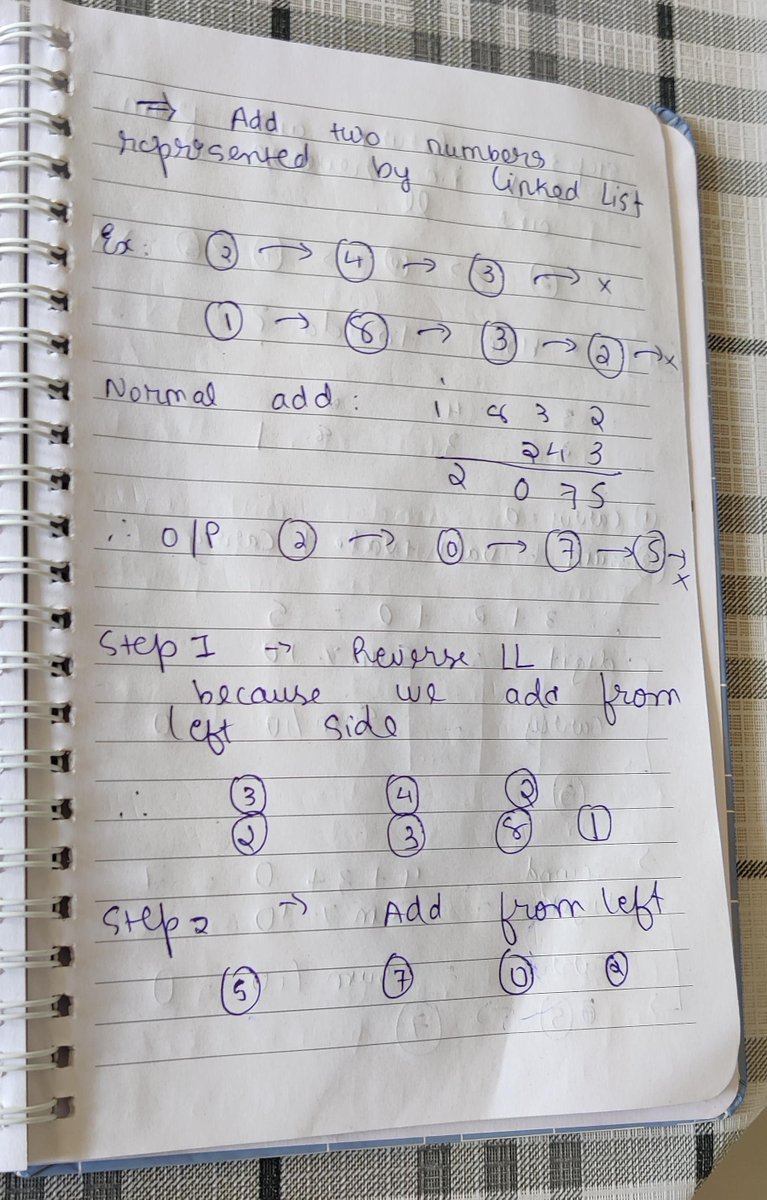 ⇒ Add two numbers
represented by linked list
Ex: 2 → 4 → 3 → x
1 → 8 → 3 → 2 → x
Normal add: 1 8 3 2
2 4 3
2 0 7 5
∴ O/P 2 → 0 → 7 → 5 → x
Step I → Reverse LL
because we add from
left side
∴ 3 4 2
2 3 8 1
Step 2 → Add from left
5 7 0 2